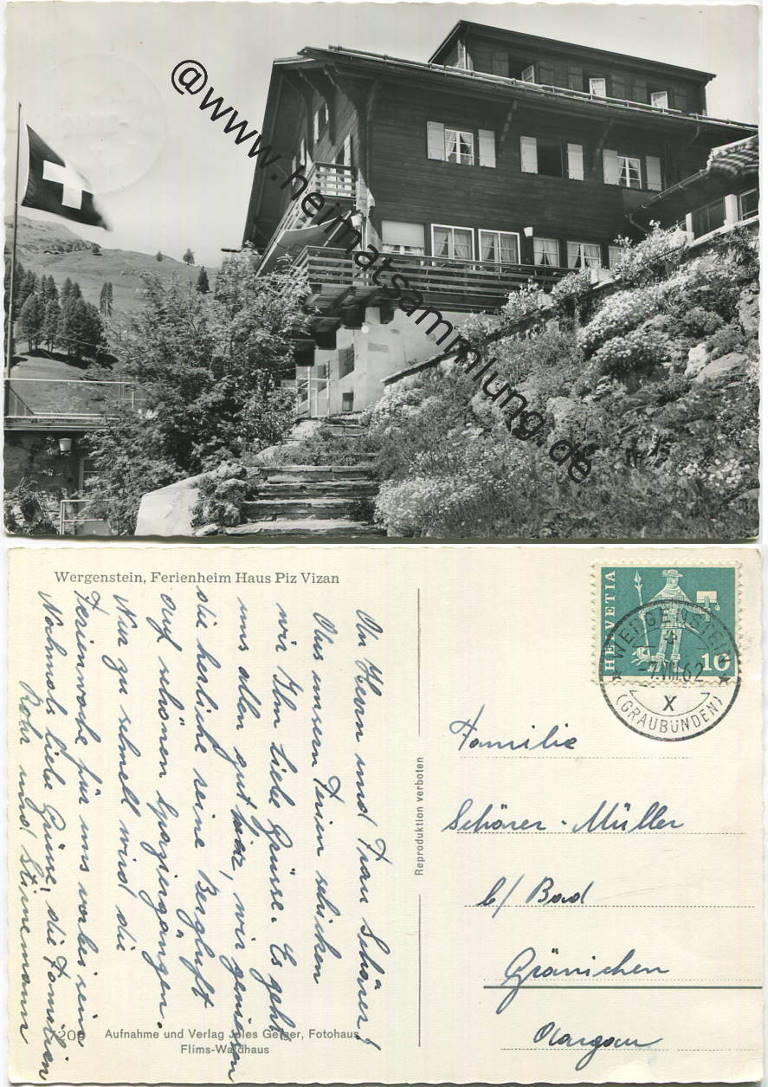 @www.heimatsammlung.de
Wergenstein, Ferienheim Haus Piz Vizan
An Herrn und Frau Schärer!
Aus unseren Ferien schicken
wir Ihn Liebe Grüsse. Es geht
uns allen gut, wir geniesen
die herliche reine Bergluft
auf schönen Spaziergängen.
Nur zu schnell wird die
Ferienwoche für uns vorbei sein
Nochmals liebe Grüsse, die Familien
Rohr und Stirnemann
7209
Aufnahme und Verlag Jules Geiger, Fotohaus
Flims-Waldhaus
Reproduktion verboten
HELVETIA
10
WERGENSTEIN
7.VIII.62
X
(GRAUBÜNDEN)
Familie
Schärer-Müller
b/ Bad
Gränichen
Aargau